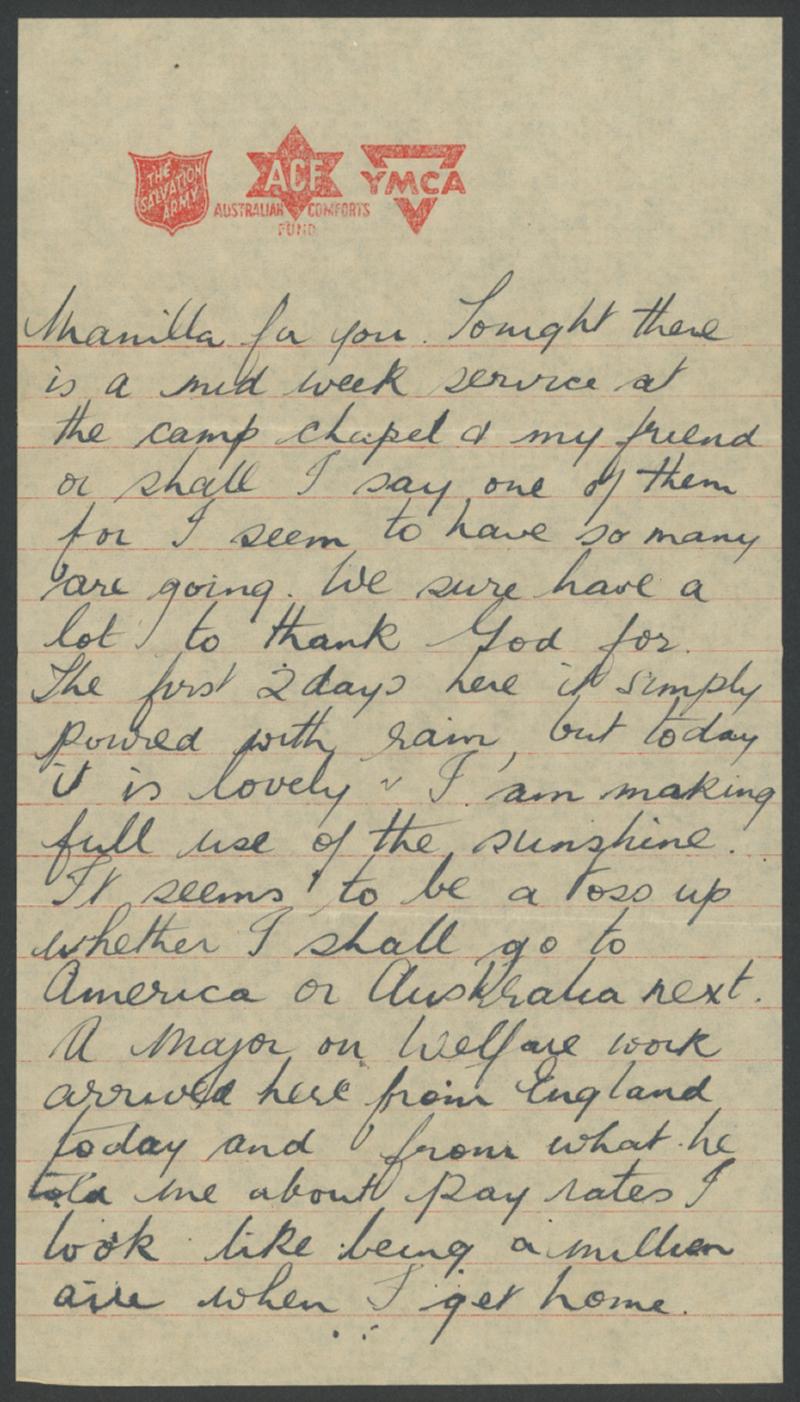 THE
SALVATION
ARMY
ACF
AUSTRALIAN COMFORTS
FUND
YMCA
Manilla for you. Tonight there
is a mid week service at
the camp chapel & my friend
or shall I say one of them
for I seem to have so many
are going. We sure have a
lot to thank God for.
The first 2 days here it simply
poured with rain, but today
it is lovely & I am making
full use of the sunshine.
It seems to be a toss up
whether I shall go to
America or Australia next.
A Major on Welfare work
arrived here from England
today and from what he
told me about pay rates I
look like being a million
aire when I get home.